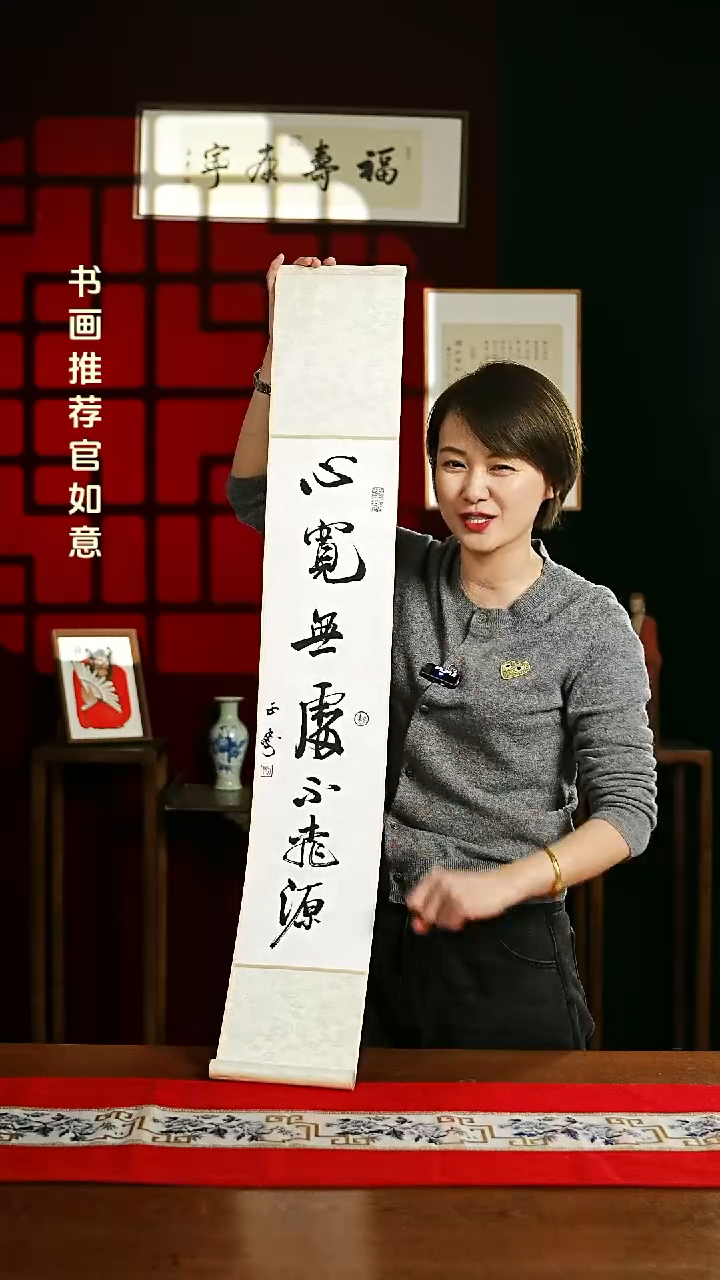 福壽康寧
书画推荐官如意
心寬無處不桃源